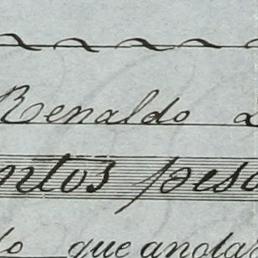 Renaldo
ntos pes
do que anda